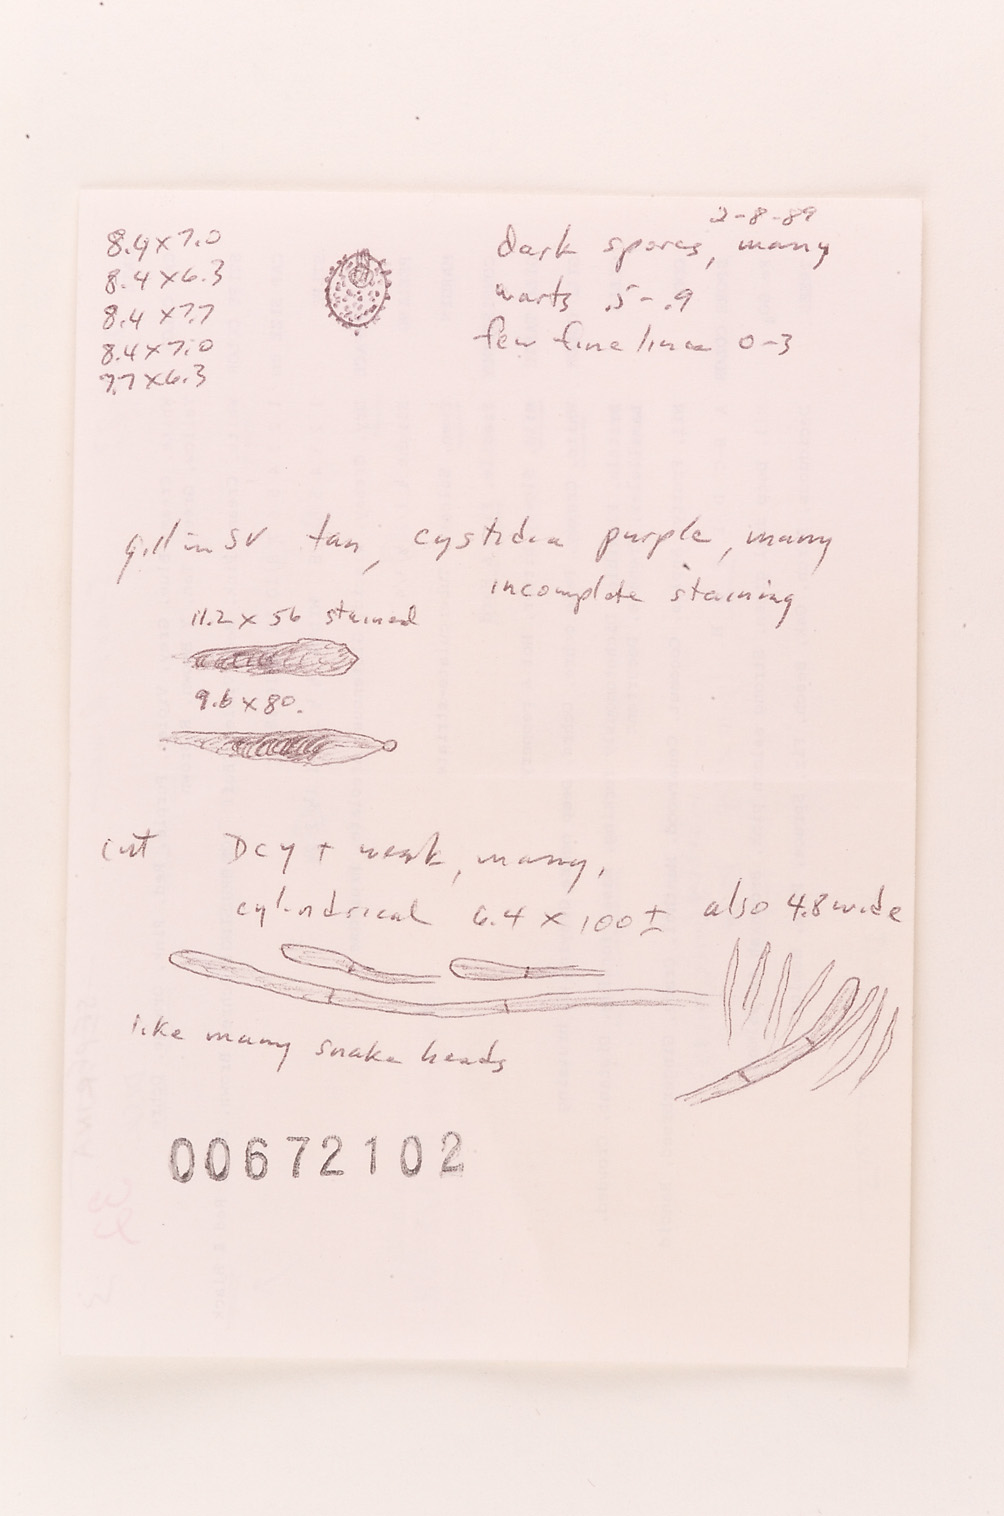 2-8-89
8.4 x 7.0
8.4 x 6.3
8.4 x 7.7
8.4 x 7.0
7.7 x 6.3
dark spores, many
warts .5-.9
few fine lines 0-3
gill in SV tan, cystidia purple, many
incomplete staining
11.2 x 56 stained
9.6 x 80.
cut Dcy + weak, many,
cylindrical 6.4 x 100 ± also 4.8 wide
like many snake heads
00672102